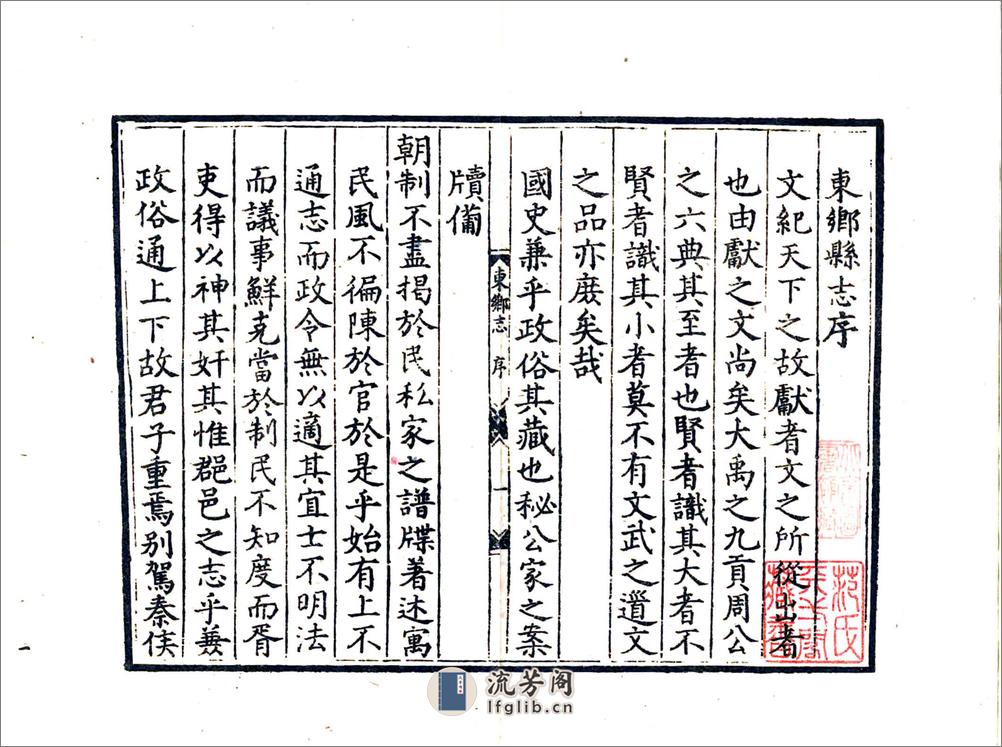 東鄉縣志序
文紀天下之故獻者文之所從出者
也由獻之文尚矣大禹之九貢周公
之六典其至者也賢者識其大者不
賢者識其小者莫不有文武之道文
之品亦庶矣哉
國史兼乎政俗其藏也秘公家之案
牘備
東鄉志 序 一
朝制不盡揭於民私家之譜牒著述寓
民風不徧陳於官於是乎始有上不
通志而政令無以適其宜士不明法
而議事鮮克當於制民不知度而胥
吏得以神其奸其惟郡邑之志乎兼
政俗通上下故君子重焉別駕秦侯
范氏天一閣藏書
流芳阁
lfglib.cn